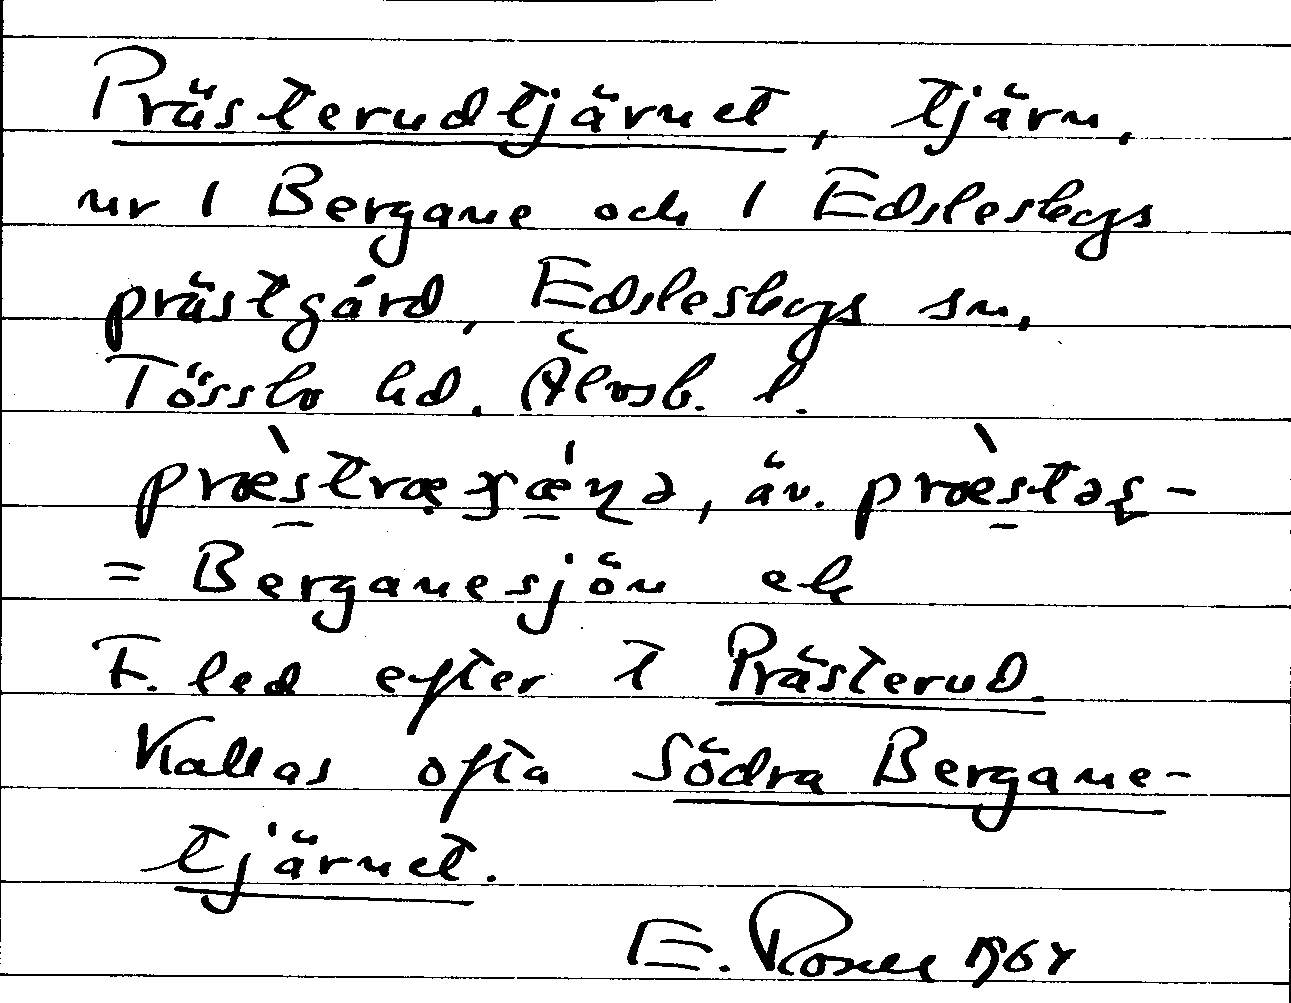 Prästerudtjärnet, tjärn,
nr 1 Bergane och 1 Edsleskogs
prästgård, Edsleskogs sn,
Tössbo hd. Älvsb. l.
äv.
= Berganesjön ek
F. led efter T Prästerud.
Kallas ofta Södra Bergane-
tjärnet.
E. 1964